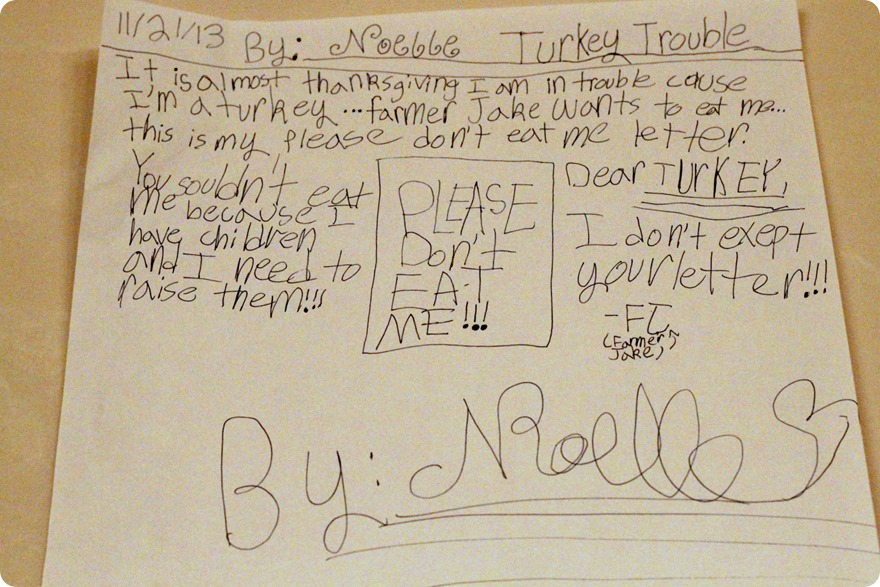 11/21/13 By: Noelle Turkey Trouble
It is almost thanksgiving I am in trouble cause
I'm a turkey ... farmer Jake wants to eat me...
this is my please don't eat me letter.
You souldn't eat
me because I
have children
and I need to
raise them!!!
PLEASE
Don't
EAT
ME!!!
Dear TURKEY,
I don't exept
your letter!!!
-FJ
(Farmer
Jake)
By: Noelle